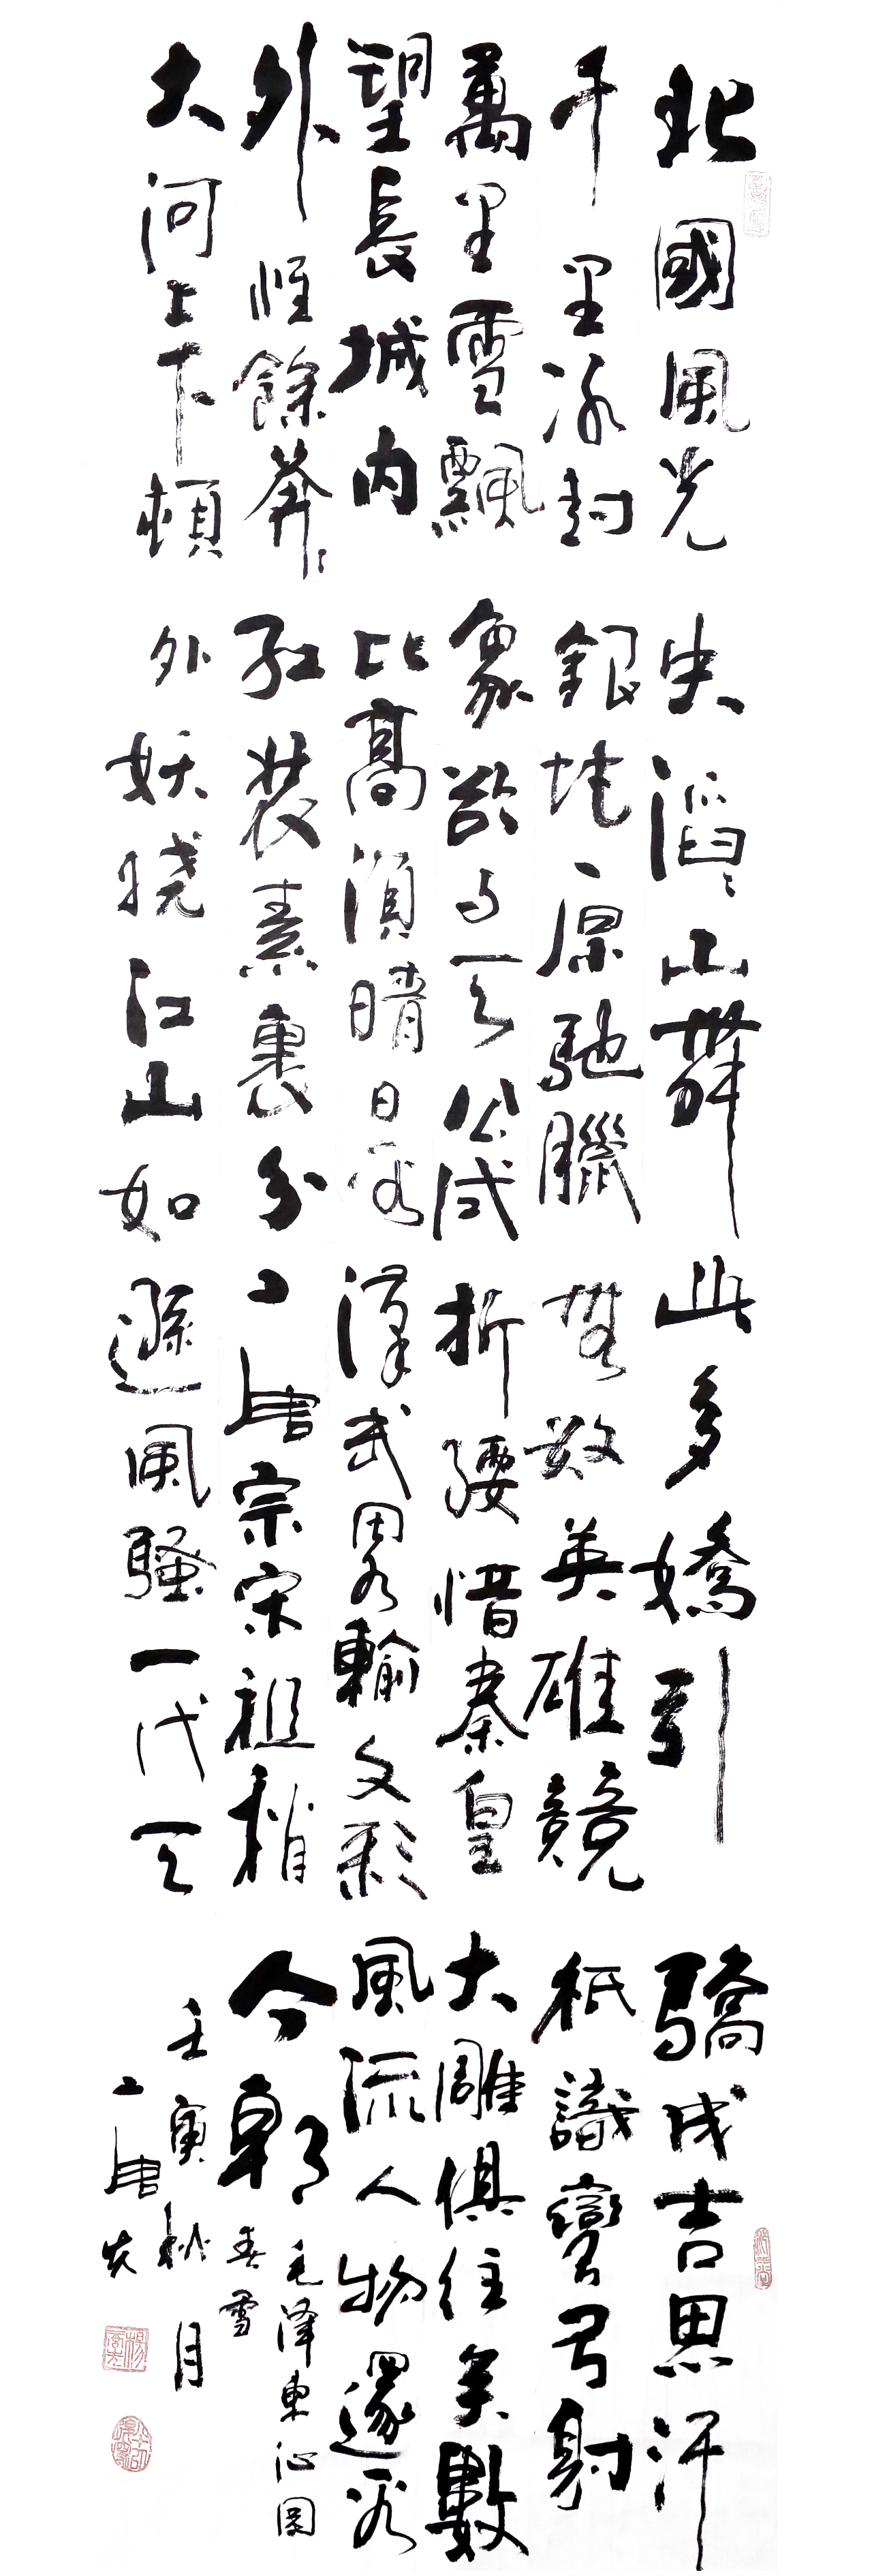 北國風光
千里冰封
萬里雪飄
望長城内
外惟餘莽〻
大河上下頓
失滔〻山舞
銀蛇原馳臘
象欲与天公試
比高須晴日看
紅裝素裹分
外妖嬈江山如
此多嬌引
無数英雄競
折腰惜秦皇
漢武略輸文彩
唐宗宋祖稍
遜風騷一代天
驕成吉思汗
祇識彎弓射
大雕俱往矣數
風流人物還看
今朝
毛澤東沁園
春雪
壬寅秋月